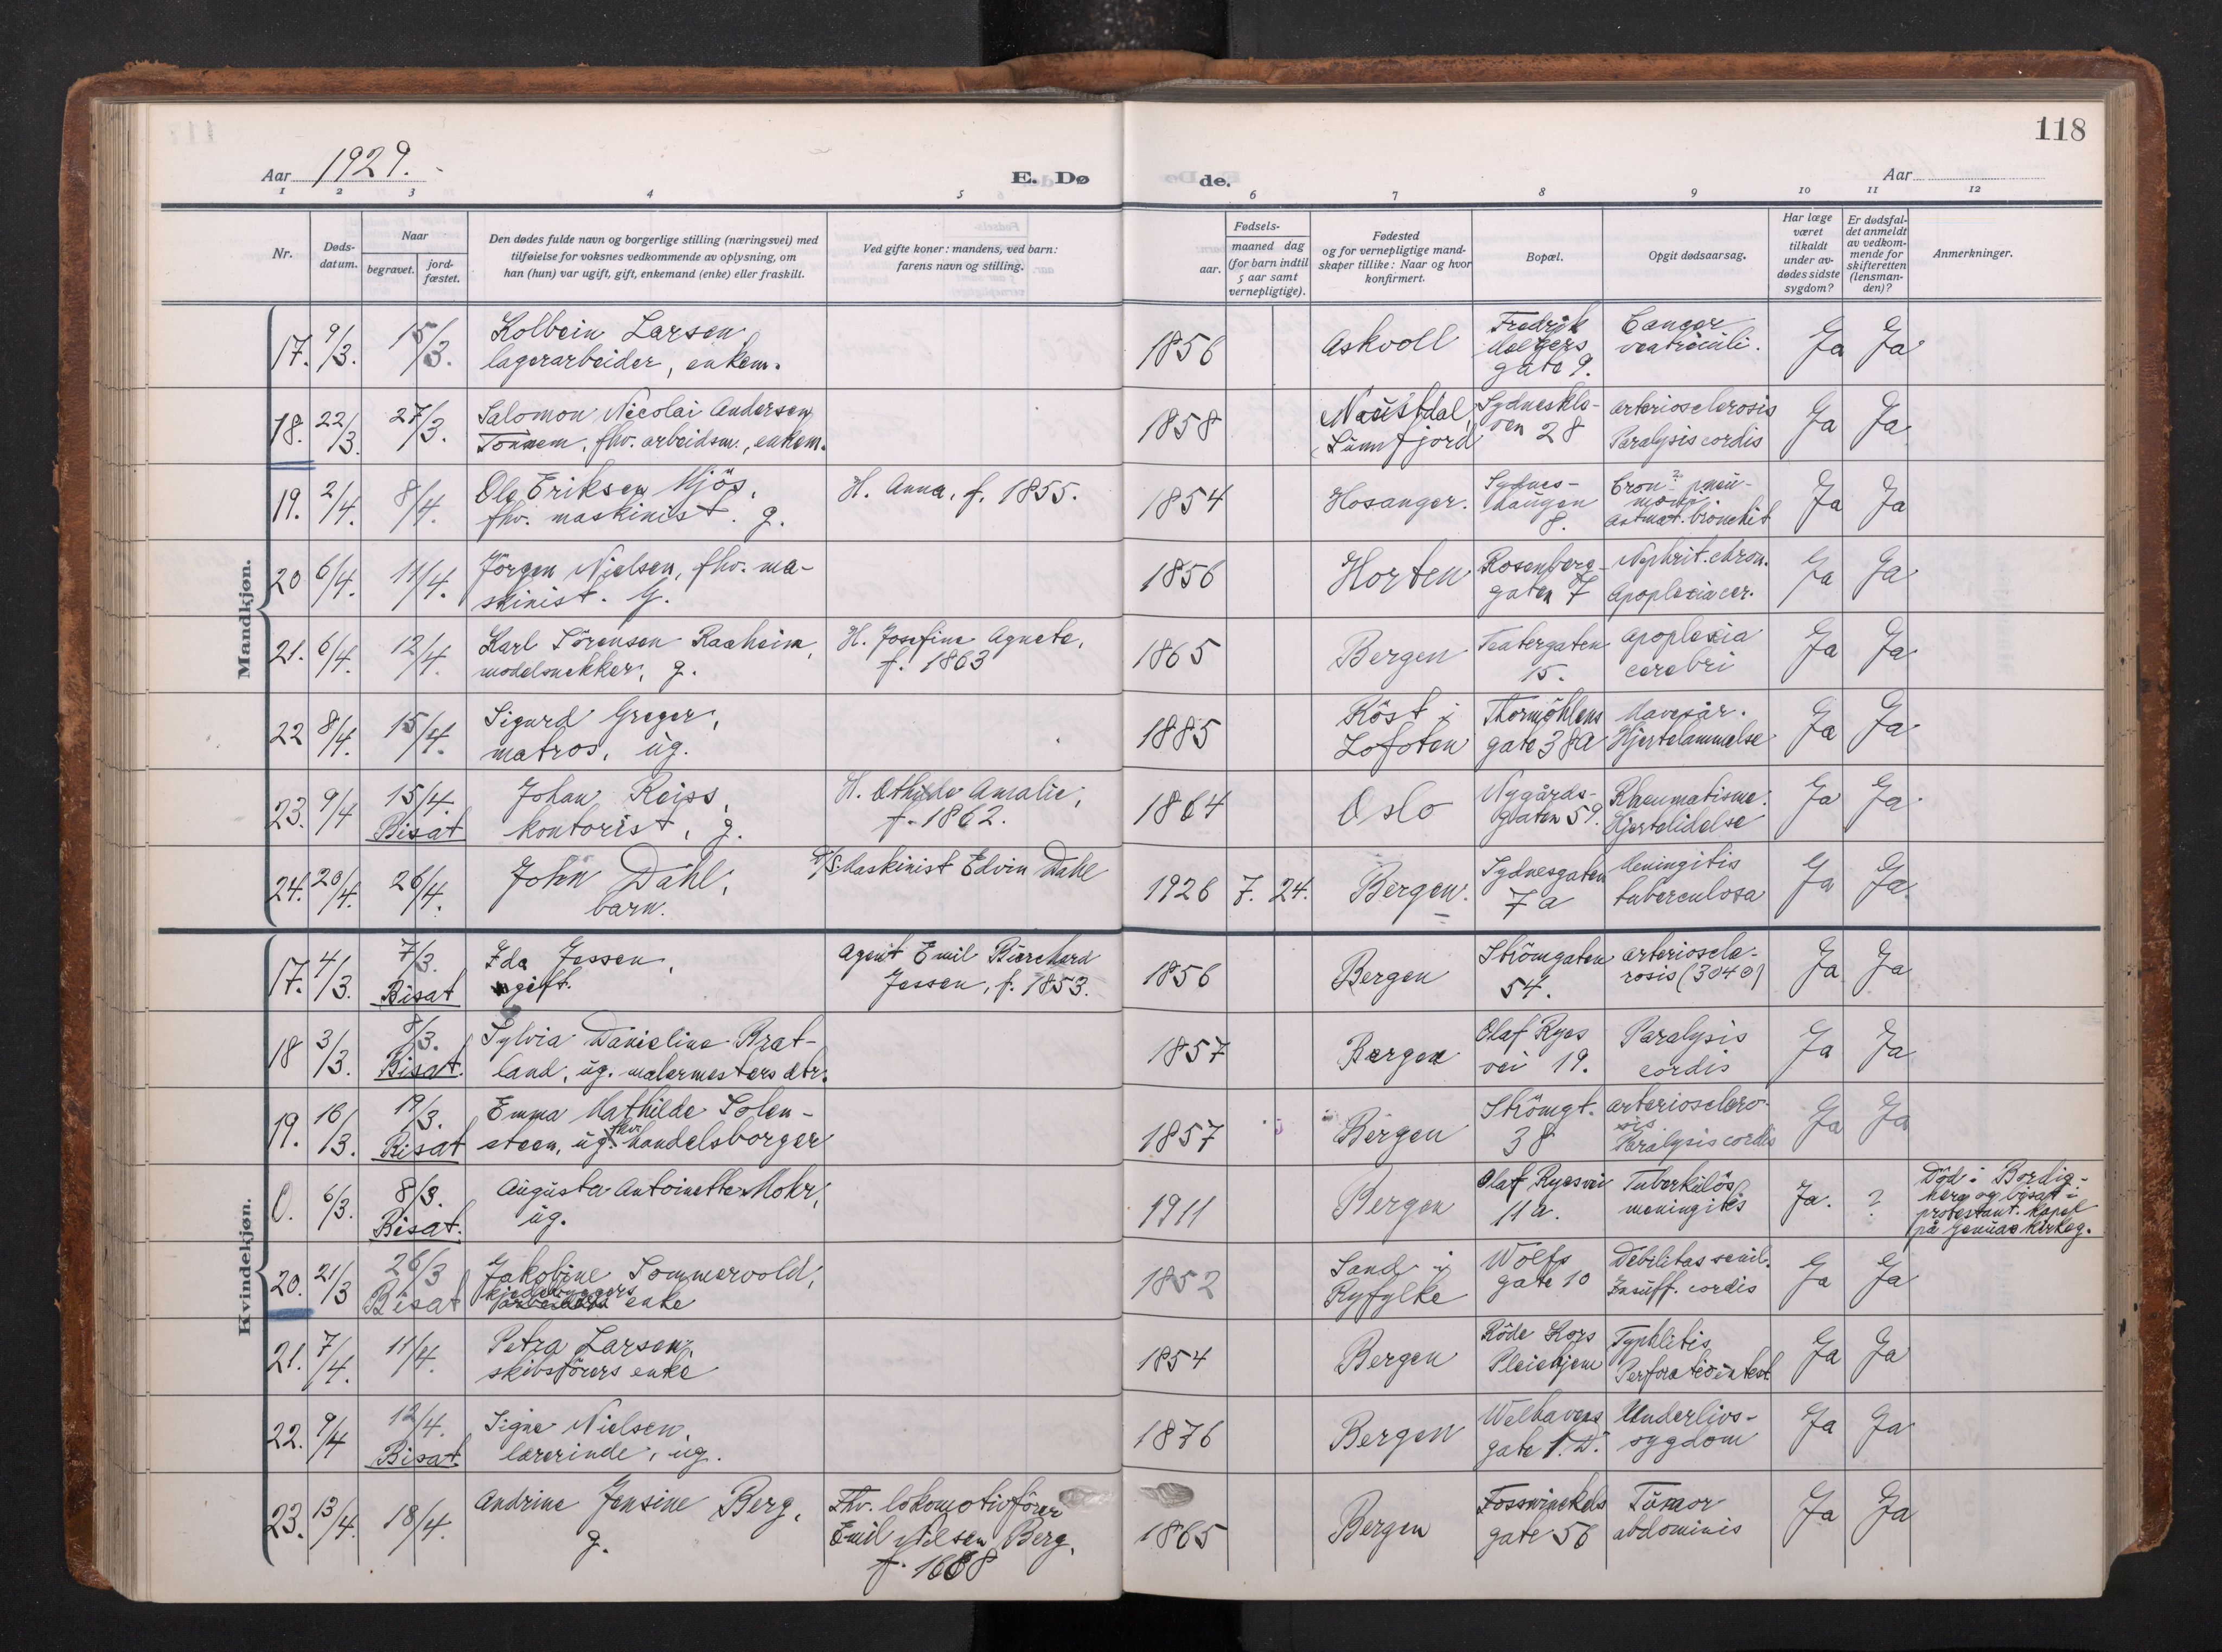 118
Aar 1929.
E. Dø
de.
Aar
1 2 3 4 5 6 7 8 9 10 11 12
Nr.
Døds-
datum.
Naar
begravet.
jord-
fæstet.
Den dødes fulde navn og borgerlige stilling (næringsvei) med
tilføielse for voksnes vedkommende av oplysning, om
han (hun) var ugift, gift, enkemand (enke) eller fraskilt.
Ved gifte koner: mandens, ved barn:
farens navn og stilling.
Fødsels-
aar.
maaned dag
(for barn indtil
5 aar samt
vernepligtige).
Fødested
og for vernepligtige mand-
skaper tillike: Naar og hvor
konfirmert.
Bopæl.
Opgit dødsaarsag.
Har læge
været
tilkaldt
under av-
dødes sidste
sygdom?
Er dødsfal-
det anmeldt
av vedkom-
mende for
skifteretten
(lensman-
den)?
Anmerkninger.
Mandkjøn.
17. 9/3. 15/3. Kolbein Larsen,
lagerarbeider, enkem.
1856 Askvoll
Fredrik
Meltzers
gate 9.
Cancer
ventriculi.
Ja Ja
18. 22/3. 27/3. Salomon Nicolai Andersen
Tonnem, fhv. arbeidsm., enkem.
1858 Naustdal,
Sunnfjord
Sydneskle-
ven 28
Arteriosclerosis
Paralysis cordis
Ja Ja
19. 2/4. 8/4. Ole Eriksen Mjös,
fhv. maskinist. g.
H. Anna, f. 1855.
1854 Hosanger.
Sydnes-
haugen
8.
Cron? pneu-
moni.
Astmat. bronchit
Ja Ja
20 6/4. 11/4. Jörgen Nielsen, fhv. ma-
skinist. G.
1856 Horten
Rosenberg-
gaten 7
Nephrit. chron.
Apoplexia cer.
Ja Ja
21. 6/4. 12/4. Karl Sörensen Raaheim,
modelsnekker, g.
H. Josefine Agnete,
f. 1863
1865 Bergen
Teatergaten
15.
Apoplexia
cerebri
Ja Ja
22 8/4. 15/4. Sigurd Greger,
matros, ug.
1885 Röst i
Lofoten
Thormöhlens
gate 38A
Mavesår.
Hjertelammelse
Ja Ja
23. 9/4 15/4.
Bisat
Johan Reiss,
kontorist, g.
H. Othilde Amalie,
f. 1862.
1864 Oslo
Nygårds-
gaten 59.
Rheumatisme.
Hjertelidelse
Ja Ja
24. 20/4. 26/4. John Dahl,
barn.
Maskinist Edvin Dahl
1926 7. 24. Bergen.
Sydnesgaten
7a
Meningitis
tuberculosa
Ja Ja
Kvindekjøn.
17. 4/3. 7/3.
Bisat
Ida Jessen,
gift.
Agent Emil Burchard
Jessen, f. 1853.
1856 Bergen
Strömgaten
54.
Arterioscle-
rosis (3040)
Ja Ja
18 3/3. 8/3.
Bisat.
Sylvia Danieline Brat-
land, ug. malermesters dtr.
1857 Bergen
Olaf Ryes
vei 19.
Paralysis
cordis
Ja Ja
19. 16/3. 19/3.
Bisat
Emma Mathilde Solen-
steen, ug. fhv. handelsborger
1857 Bergen
Strömgt.
38
Arteriosclero-
sis
Paralysis cordis
Ja Ja
0. 6/3. 8/3.
Bisat.
Augusta Antoinette Mohr,
ug.
1911 Bergen
Olaf Ryesvei
11a.
Tuberkulös
meningitis
Ja. ?
Död i Bordig-
hera og bisat i
protestant. kapel
på Genuas kirkeg.
20. 21/3 26/3
Bisat
Jakobine Sommervold,
enke
1852 Sand i
Ryfylke
Wolffs
gate 10
Debilitas senil.
Insuff. cordis
Ja Ja
21. 7/4. 11/4. Petra Larsen,
skibsförers enke
1854 Bergen
Röde Kors
Pleiehjem
Typhlitis
Perforatio intest
Ja Ja
22. 9/4 12/4.
Bisat
Signe Nielsen,
lærerinde, ug.
1876 Bergen
Welhavens
gate 1. D.
Underlivs-
sygdom
Ja Ja
23. 13/4. 18/4. Andrine Jensine Berg,
g.
Fhv. lokomotivförer
Emil Nilsen Berg,
f. 1868
1865 Bergen
Fosswinckels
gate 56
Tumor
abdominis
Ja Ja